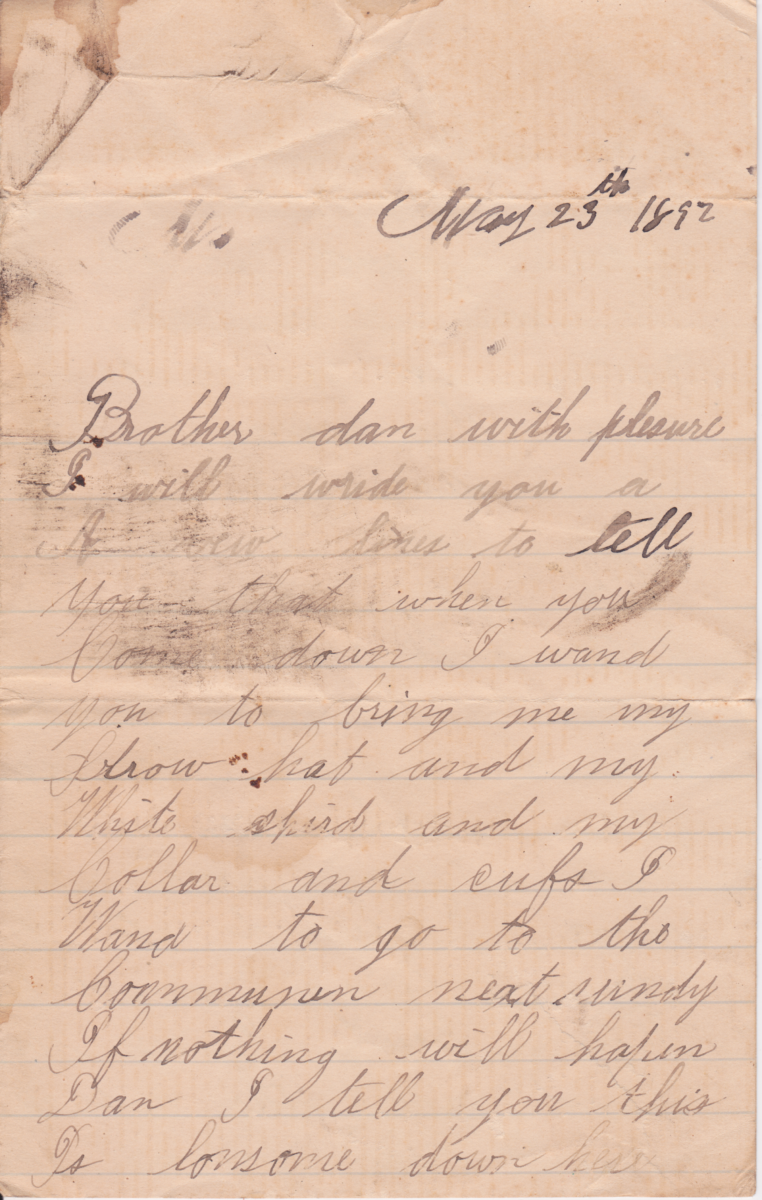 May 23th 1892
Brother dan with plesure
I will wride you a
A vew lines to tell
You that when you
Come down I wand
you to bring me my
Strow hat and my
White shird and my
Collar and cufs I
Wand to go to the
Coammunen next sundy
If nothing will hapen
Dan I tell you this
Is lonsome down here